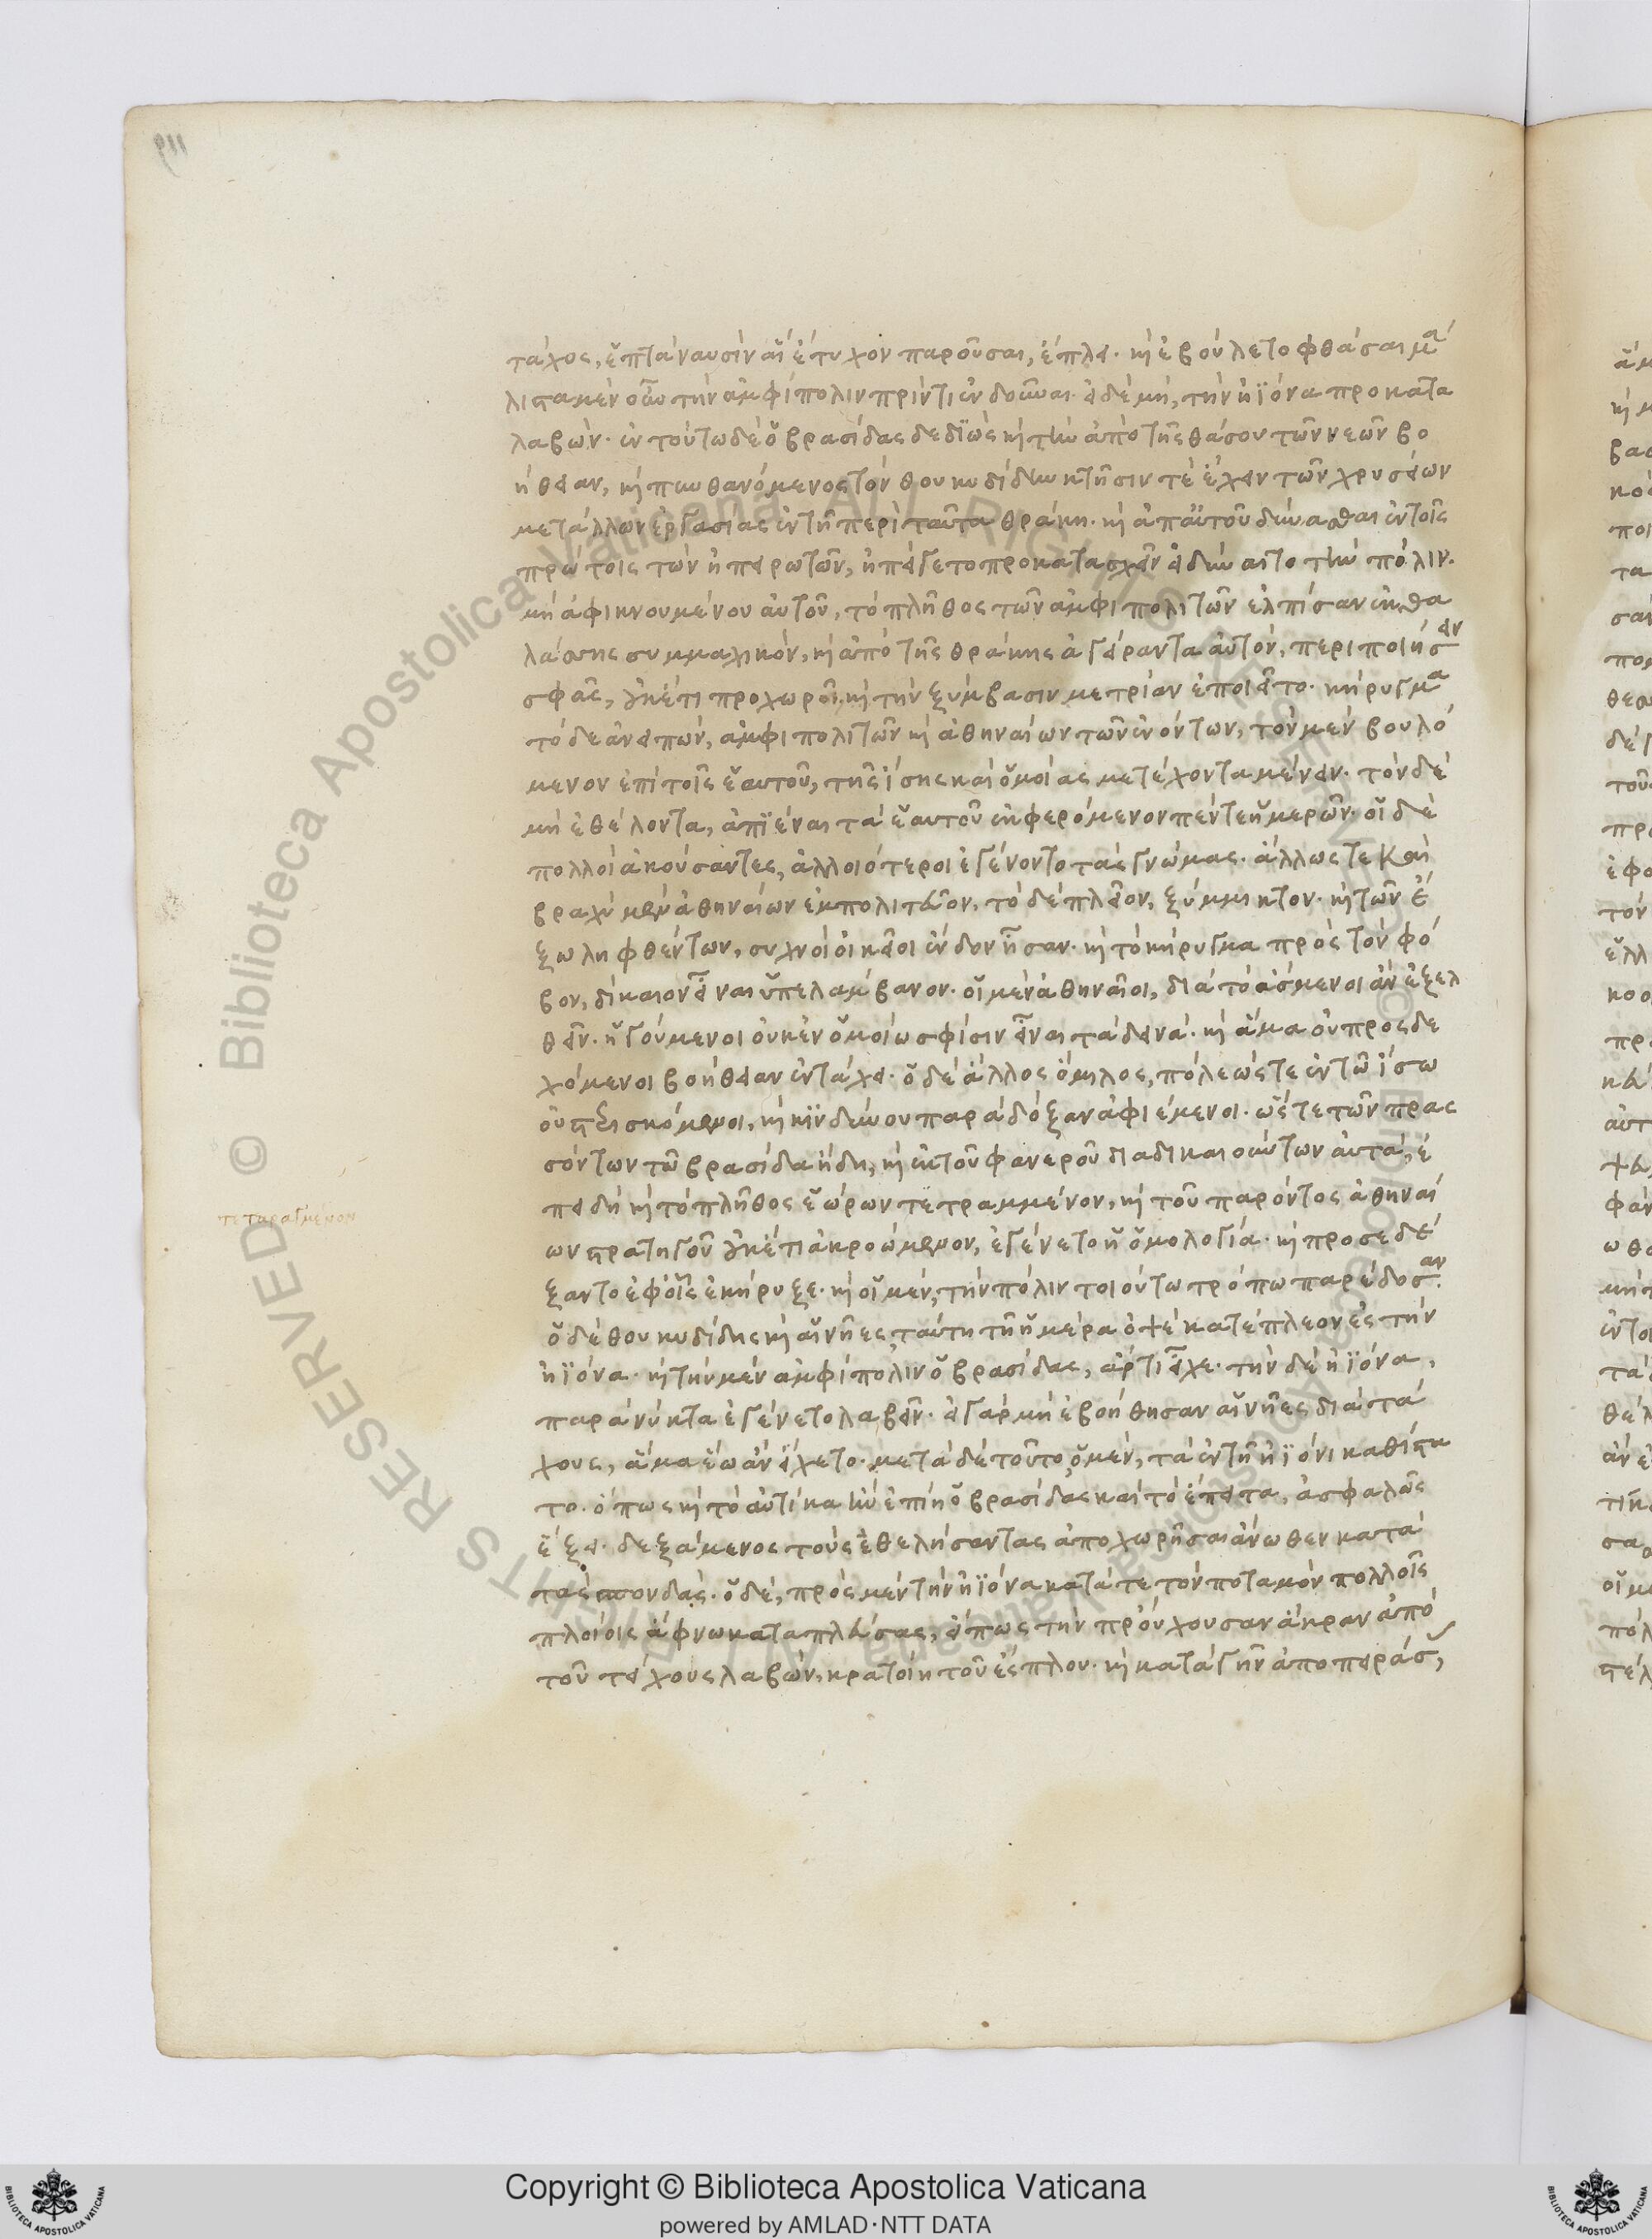 τάχος, ἑπτὰ ναυσὶν αἳ ἔτυχον παροῦσαι, ἔπλει· καὶ ἐβούλετο φθάσαι μά
λιστα μὲν οὖν τὴν ἀμφίπολιν πρίν τι ἐνδοῦναι· εἰ δὲ μὴ, τὴν ἠϊόνα προκατα
λαβών· ἐν τούτω δὲ ὁ βρασίδας δεδιὼς καὶ τὴν ἀπὸ τῆς θάσου τῶν νεῶν βο
ήθειαν, καὶ πυνθανόμενος τὸν θουκυδίδην κτῆσίν τε ἔχειν τῶν χρυσείων
μετάλλων ἐργασίας ἐν τῆ περὶ ταῦτα θράκη· καὶ ἀπ' αὐτοῦ δύνασθαι ἐν τοῖς
πρώτοις τῶν ἠπειρωτῶν, ἠπείγετο προκατασχεῖν εἰ δύναιτο τὴν πόλιν.
μὴ ἀφικνουμένου αὐτοῦ, τὸ πλῆθος τῶν ἀμφιπολιτῶν ἐλπίσαν ἐκ θα
λάσσης συμμαχικὸν, καὶ ἀπὸ τῆς θράκης ἀγείραντα αὐτὸν, περιποιήσειν
σφᾶς, οὐκέτι προχωροῖ· καὶ τὴν ξύμβασιν μετρίαν ἐποιεῖτο· κήρυγμα
τόδε ἀνειπὼν, ἀμφιπολιτῶν καὶ ἀθηναίων τῶν ἐνόντων, τὸν μὲν βουλό
μενον ἐπὶ τοῖς ἑαυτοῦ, τῆς ἴσης καὶ ὁμοίας μετέχοντα μένειν· τὸν δὲ
μὴ ἐθέλοντα, ἀπϊέναι τὰ ἑαυτοῦ ἐκφερόμενον πέντε ἡμερῶν· οἱ δὲ
πολλοὶ ἀκούσαντες, ἀλλοιότεροι ἐγένοντο τὰς γνώμας· ἄλλως τε καὶ
βραχὺ μὲν ἀθηναίων ἐμπολιτεῦον, τὸ δὲ πλεῖον, ξύμμικτον· καὶ τῶν ἔ
ξω ληφθέντων, συχνοὶ οἰκεῖοι ἔνδον ἦσαν· καὶ τὸ κήρυγμα πρὸς τὸν φό
βον, δίκαιον εἶναι ὑπελάμβανον· οἱ μὲν ἀθηναῖοι, διὰ τὸ ἄσμενοι ἂν ἐξελ
θεῖν· ἡγούμενοι οὐκ ἐν ὁμοίω σφίσιν εἶναι τὰ δεινά· καὶ ἅμα οὐ προσδε
χόμενοι βοήθειαν ἐν τάχει· ὁ δὲ ἄλλος ὅμιλος, πόλεώς τε ἐν τῶ ἴσω
οὐ στερισκόμενοι, καὶ κινδύνου παρὰ δόξαν ἀφιέμενοι· ὥστε τῶν πρασ
σόντων τῶ βρασίδα ἤδη, καὶ ἐκ τοῦ φανεροῦ διαδικαιούντων αὐτὰ, ἐ
πειδὴ καὶ τὸ πλῆθος ἑώρων τετραμμένον, καὶ τοῦ παρόντος ἀθηναί
τεταραγμένον
ων στρατηγοῦ οὐκέτι ἀκροώμενον, ἐγένετο ἡ ὁμολογία· καὶ προσεδέ
ξαντο ἐφ' οἷς ἐκήρυξε· καὶ οἱ μὲν, τὴν πόλιν τοιούτω τρόπω παρέδοσαν.
ὁ δὲ θουκυδίδης καὶ αἱ νῆες, ταύτη τῆ ἡμέρα ὀψὲ κατέπλεον ἐς τὴν
ἠϊόνα· καὶ τὴν μὲν ἀμφίπολιν ὁ βρασίδας, ἄρτι εἶχε· τὴν δὲ ἠϊόνα,
παρὰ νύκτα ἐγένετο λαβεῖν· εἰ γὰρ μὴ ἐβοήθησαν αἱ νῆες διὰ τά
χους, ἅμα ἕω ἂν εἴχετο· μετὰ δὲ τοῦτο, ὁ μὲν, τὰ ἐν τῆ ἠϊόνι καθίστα
το· ὅπως καὶ τὸ αὐτίκα ἢν ἐπίη ὁ βρασίδας καὶ τὸ ἔπειτα, ἀσφαλῶς
ἕξει· δεξάμενος τοὺς ἐθελήσαντας ἀποχωρῆσαι ἄνωθεν κατὰ
τὰς σπονδάς· ὁ δὲ, πρὸς μὲν τὴν ἠϊόνα κατά τε τὸν ποταμὸν πολλοῖς
πλοίοις ἄφνω καταπλεύσας, εἴ πως τὴν προύχουσαν ἄκραν ἀπὸ
τοῦ τείχους λαβὼν, κρατοίη τοῦ ἔσπλου· καὶ κατὰ γῆν ἀποπειράσας,
Copyright © Biblioteca Apostolica Vaticana
powered by AMLAD·NTT DATA